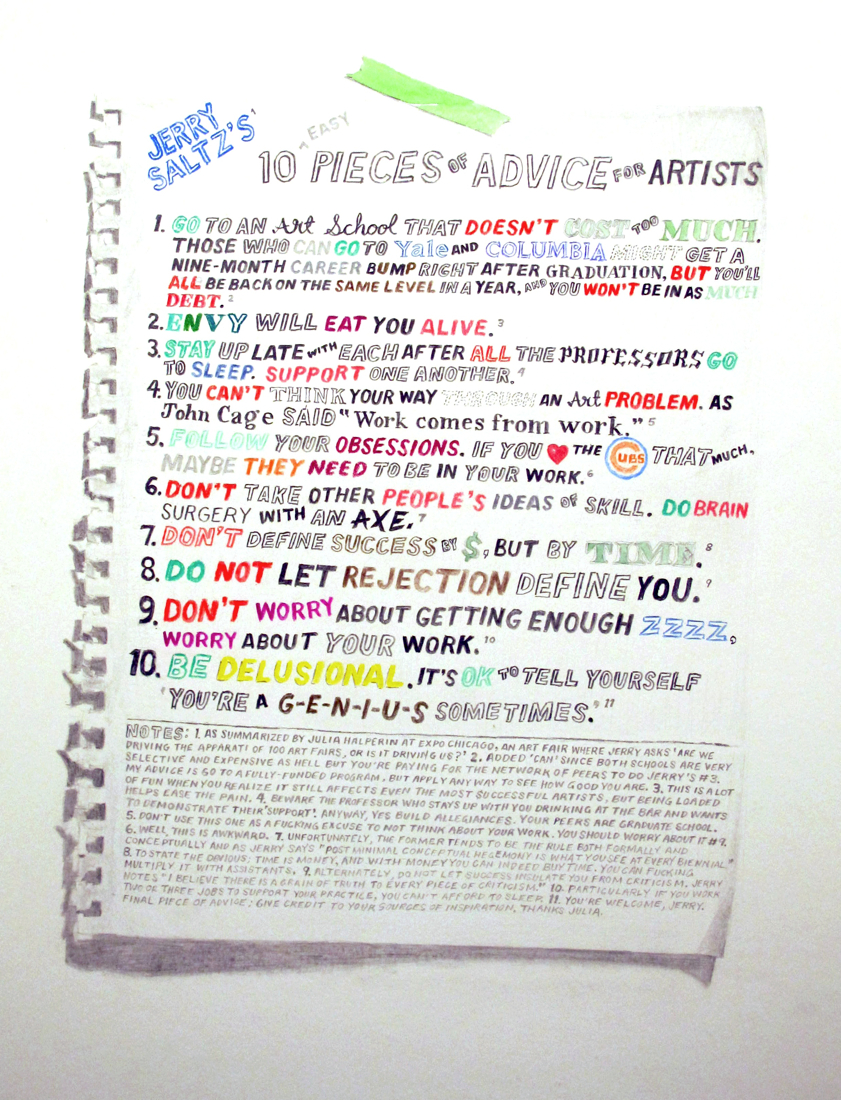 JERRY
SALTZ'S¹
^EASY
10 PIECES OF ADVICE FOR ARTISTS
1. GO TO AN Art School THAT DOESN'T COST TOO MUCH.
THOSE WHO CAN GO TO Yale AND COLUMBIA MIGHT GET A
NINE-MONTH CAREER BUMP RIGHT AFTER GRADUATION, BUT YOU'LL
ALL BE BACK ON THE SAME LEVEL IN A YEAR, AND YOU WON'T BE IN AS MUCH
DEBT.²
2. ENVY WILL EAT YOU ALIVE.³
3. STAY UP LATE WITH EACH AFTER ALL THE PROFESSORS GO
TO SLEEP. SUPPORT ONE ANOTHER.⁴
4. YOU CAN'T THINK YOUR WAY THROUGH AN Art PROBLEM. AS
John Cage SAID "Work comes from work."⁵
5. FOLLOW YOUR OBSESSIONS. IF YOU ❤ THE CUBS THAT MUCH,
MAYBE THEY NEED TO BE IN YOUR WORK.⁶
6. DON'T TAKE OTHER PEOPLE'S IDEAS OF SKILL. DO BRAIN
SURGERY WITH AN AXE.⁷
7. DON'T DEFINE SUCCESS BY $, BUT BY TIME.⁸
8. DO NOT LET REJECTION DEFINE YOU.⁹
9. DON'T WORRY ABOUT GETTING ENOUGH ZZZZ,
WORRY ABOUT YOUR WORK.¹⁰
10. BE DELUSIONAL. IT'S OK TO TELL YOURSELF
'YOU'RE A G-E-N-I-U-S SOMETIMES.'¹¹
NOTES: 1. AS SUMMARIZED BY JULIA HALPERIN AT EXPO CHICAGO, AN ART FAIR WHERE JERRY ASKS 'ARE WE
DRIVING THE APPARATI OF 100 ART FAIRS, OR IS IT DRIVING US?' 2. ADDED 'CAN' SINCE BOTH SCHOOLS ARE VERY
SELECTIVE AND EXPENSIVE AS HELL BUT YOU'RE PAYING FOR THE NETWORK OF PEERS TO DO JERRY'S #3.
MY ADVICE IS GO TO A FULLY-FUNDED PROGRAM, BUT APPLY ANYWAY TO SEE HOW GOOD YOU ARE. 3. THIS IS A LOT
OF FUN WHEN YOU REALIZE IT STILL AFFECTS EVEN THE MOST SUCCESSFUL ARTISTS, BUT BEING LOADED
HELPS EASE THE PAIN. 4. BEWARE THE PROFESSOR WHO STAYS UP WITH YOU DRINKING AT THE BAR AND WANTS
TO DEMONSTRATE THEIR 'SUPPORT'. ANYWAY, YES BUILD ALLEGIANCES. YOUR PEERS ARE GRADUATE SCHOOL.
5. DON'T USE THIS ONE AS A FUCKING EXCUSE TO NOT THINK ABOUT YOUR WORK. YOU SHOULD WORRY ABOUT IT #9.
6. WELL, THIS IS AWKWARD. 7. UNFORTUNATELY, THE FORMER TENDS TO BE THE RULE BOTH FORMALLY AND
CONCEPTUALLY AND AS JERRY SAYS "POST MINIMAL CONCEPTUAL HEGEMONY IS WHAT YOU SEE AT EVERY BIENNIAL."
8. TO STATE THE OBVIOUS: TIME IS MONEY, AND WITH MONEY YOU CAN INDEED BUY TIME. YOU CAN FUCKING
MULTIPLY IT WITH ASSISTANTS. 9. ALTERNATELY, DO NOT LET SUCCESS INSULATE YOU FROM CRITICISM. JERRY
NOTES "I BELIEVE THERE IS A GRAIN OF TRUTH TO EVERY PIECE OF CRITICISM." 10. PARTICULARLY IF YOU WORK
TWO OR THREE JOBS TO SUPPORT YOUR PRACTICE, YOU CAN'T AFFORD TO SLEEP. 11. YOU'RE WELCOME, JERRY.
FINAL PIECE OF ADVICE: GIVE CREDIT TO YOUR SOURCES OF INSPIRATION. THANKS JULIA.